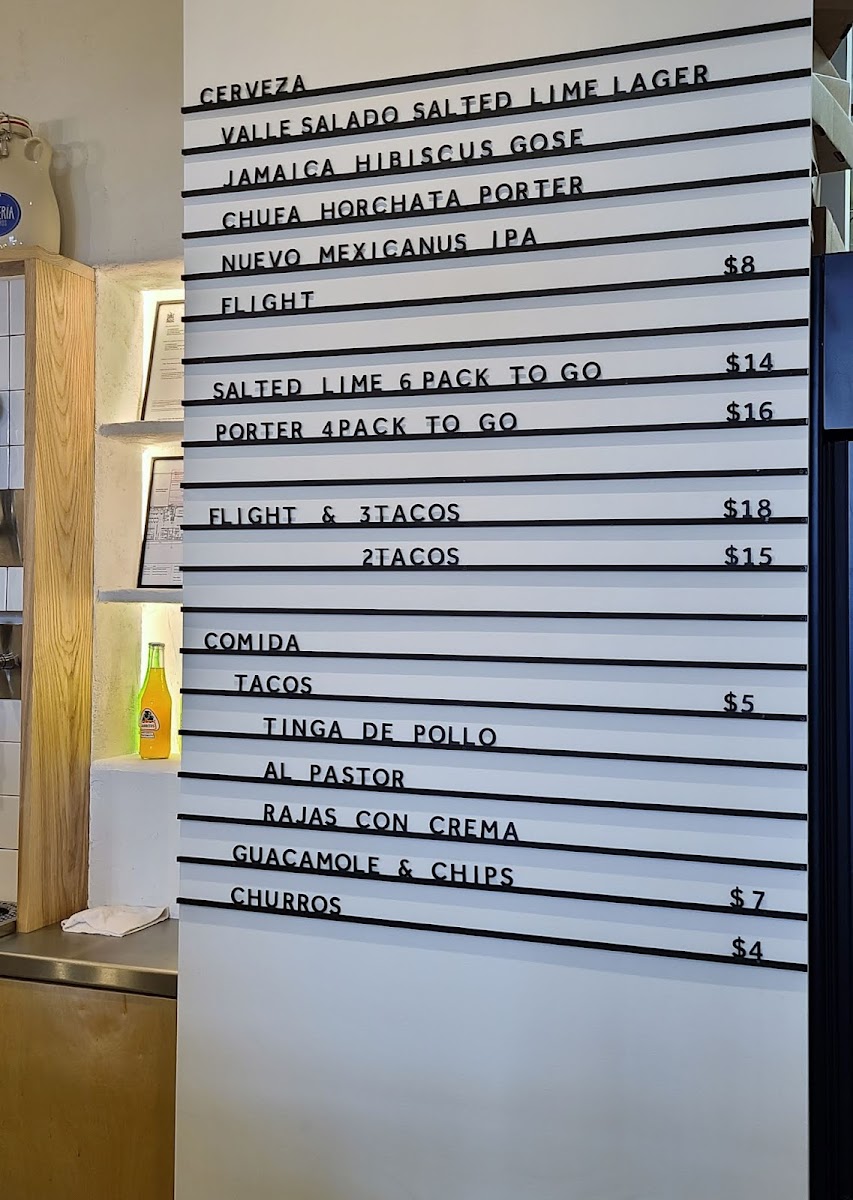 CERVEZA
VALLE SALADO SALTED LIME LAGER
JAMAICA HIBISCUS GOSE
CHUFA HORCHATA PORTER
NUEVO MEXICANUS IPA
FLIGHT $8
SALTED LIME 6 PACK TO GO $14
PORTER 4PACK TO GO $16
FLIGHT & 3TACOS $18
2TACOS $15
COMIDA
TACOS $5
TINGA DE POLLO
AL PASTOR
RAJAS CON CREMA
GUACAMOLE & CHIPS $7
CHURROS $4